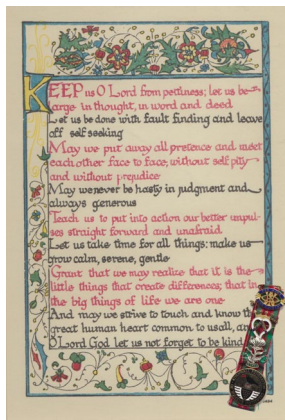 KEEP us O Lord from pettiness; let us be
large in thought, in word and deed
Let us be done with fault finding and leave
off self seeking
May we put away all pretence and meet
each other face to face, without self pity
and without prejudice
May we never be hasty in judgment and
always generous
Teach us to put into action our better impul-
ses straight forward and unafraid
Let us take time for all things; make us
grow calm, serene, gentle
Grant that we may realize that it is the
little things that create differences; that in
the big things of life we are one
And may we strive to touch and know the
great human heart common to us all, and
O Lord God let us not forget to be kind